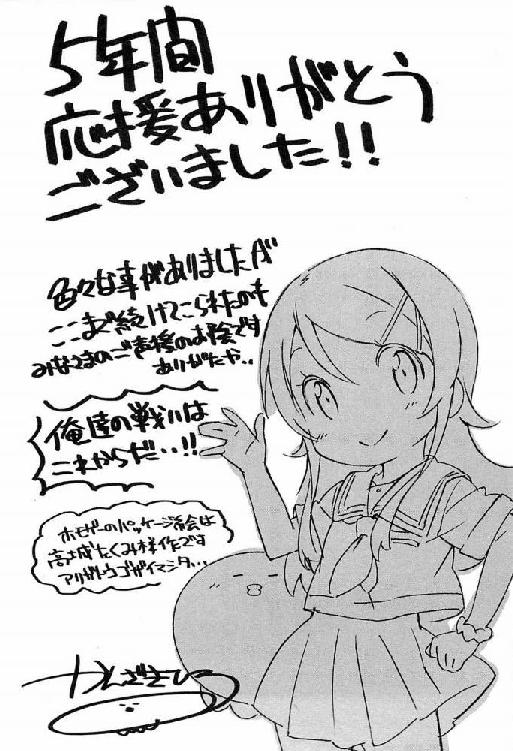 5年間
応援ありがとう
ございました!!
色々な事がありましたが
ここまで続けてこられたのも
みなさまのご声援のお陰です
ありがたや..
俺達の戦いは
これからだ・・!!
ホモゲーのパッケージ漫会は
高城たくみ料作です
アリガトウゴザイマシタ...
かんざきひろ